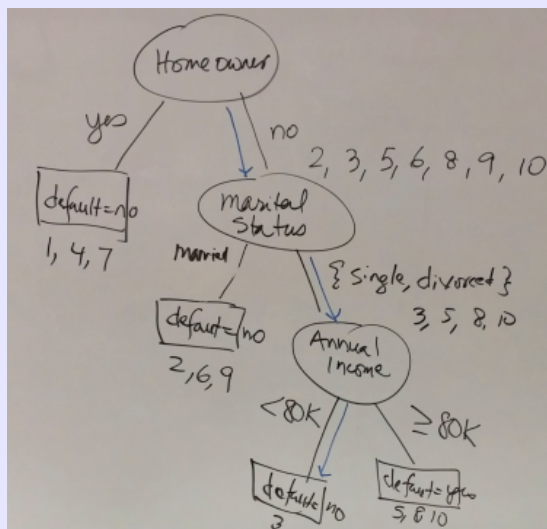 Home owner
yes
no
2, 3, 5, 6, 8, 9, 10
default=no
1, 4, 7
Marital
Status
married
{single, divorced}
3, 5, 8, 10
defaut=no
2, 6, 9
Annual
Income
<80K
≥80K
default=no
3
default=yes
5, 8 10